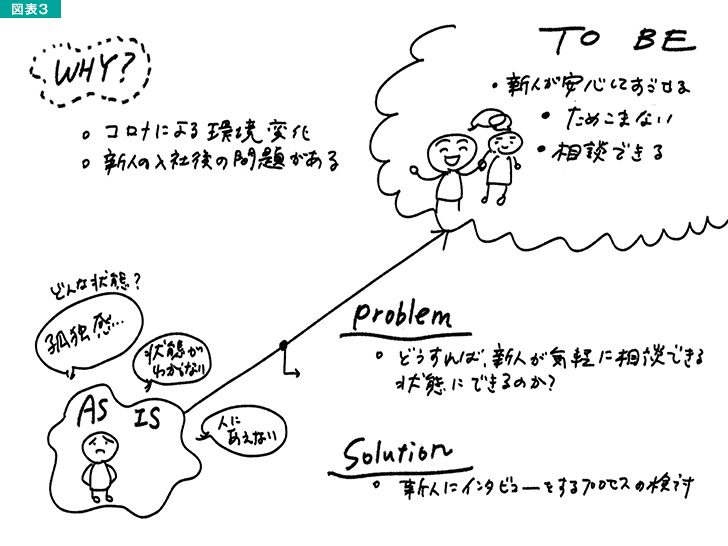 図表3
WHY?
コロナによる環境変化
新人の入社後の問題がある
TO BE
・新人が安心してすごせる
・ためこまない
・相談できる
どんな状態?
孤独感…
状態が
わからない
AS IS
人に
あえない
problem
どうすれば、新人が気軽に相談できる
状態にできるのか?
Solution
新人にインタビューをするプロセスの検討